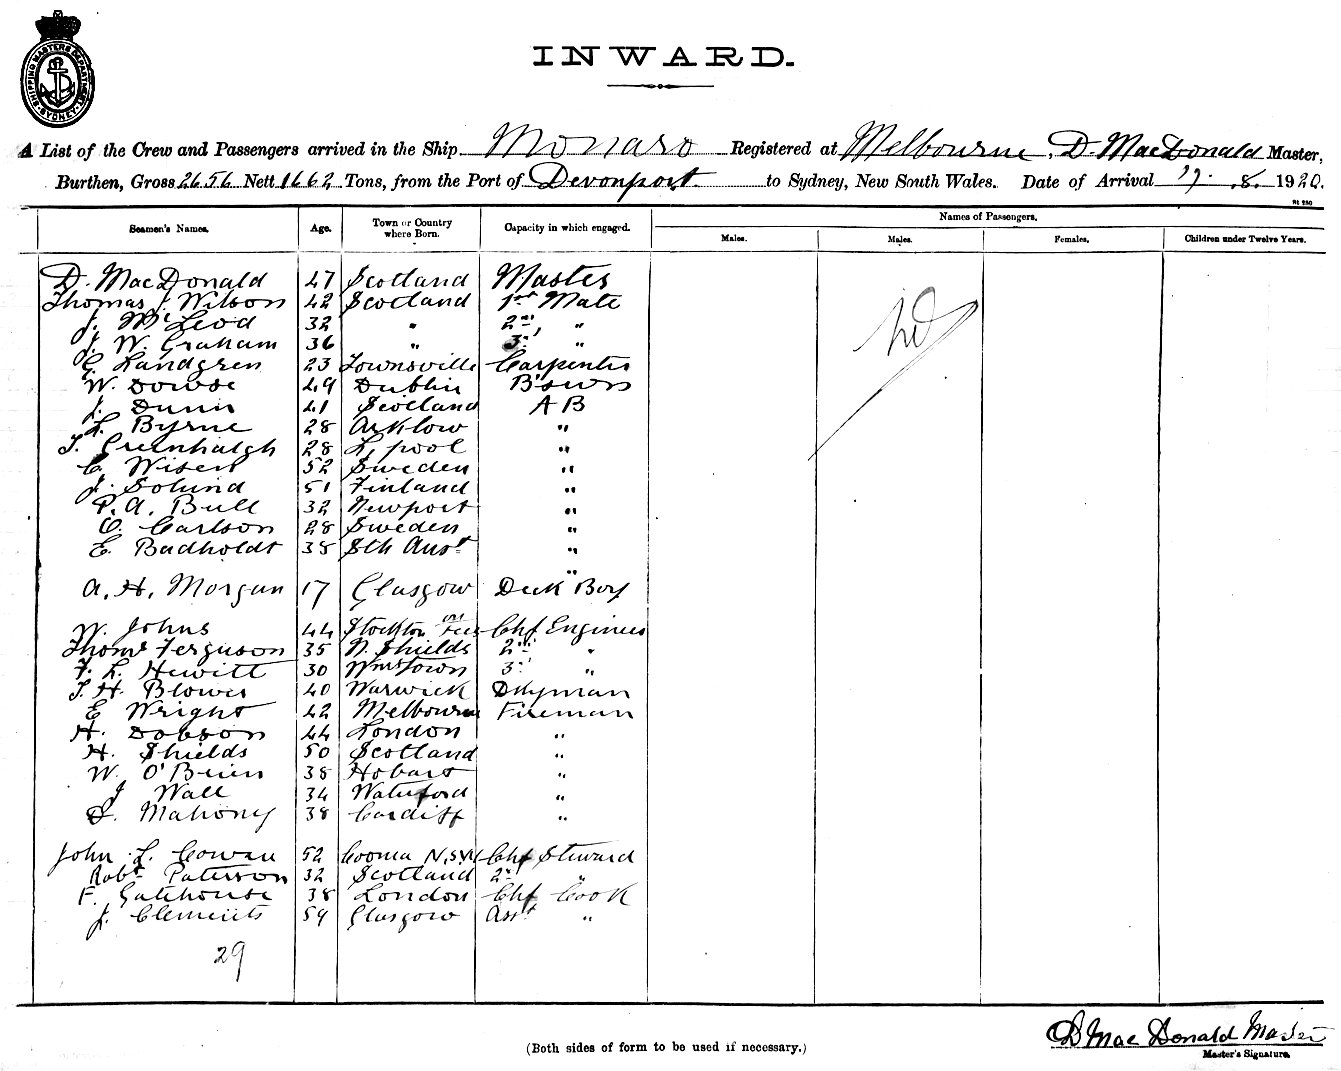 SHIPPING MASTERS DEPARTMENT SYDNEY
INWARD.
A List of the Crew and Passengers arrived in the Ship Monaro Registered at Melbourne, D. MacDonald Master,
Burthen, Gross 2656 Nett 1662 Tons, from the Port of Devonport to Sydney, New South Wales. Date of Arrival 17. 8. 1920.
Seamen's Names. Age. Town or Country where Born. Capacity in which engaged. Names of Passengers.
Males. Males. Females. Children under Twelve Years.
D. MacDonald 47 Scotland Master
Thomas J. Wilson 42 Scotland 1st Mate
J. McLeod 32 " 2nd "
J. W. Graham 36 " 3rd "
G. Landgren 23 Townsville Carpenter
W. Dowse 49 Dublin B'swn
J. Dunn 41 Scotland A B
L. Byrne 28 Arklow "
T. Greenhalgh 28 L'pool "
C. Wisen 52 Sweden "
J. Solund 51 Finland "
P. A. Bull 32 Newport "
O. Carlson 28 Sweden "
E. Badholdt 38 Sth Aust "
"
A. H. Morgan 17 Glasgow Deck Boy
W. Johns 44 Stockton on Tees Chf Engineer
Thoms Ferguson 35 N. Shields 2nd "
F. L. Hewitt 30 Wmstown 3rd "
T. H. Blower 40 Warwick Dkyman
E Wright 42 Melbourne Fireman
H. Dobson 44 London "
H. Shields 50 Scotland "
W. O'Brien 38 Hobart "
J Wall 34 Waterford "
D. Mahony 38 Cardiff "
John L. Cowan 52 Cooma N.S.W Chf Steward
Robt Paterson 32 Scotland 2nd "
F. Gatehouse 38 London Chf Cook
J. Clements 59 Glasgow Asst "
29
D MacDonald Master
Master's Signature.
(Both sides of form to be used if necessary.)